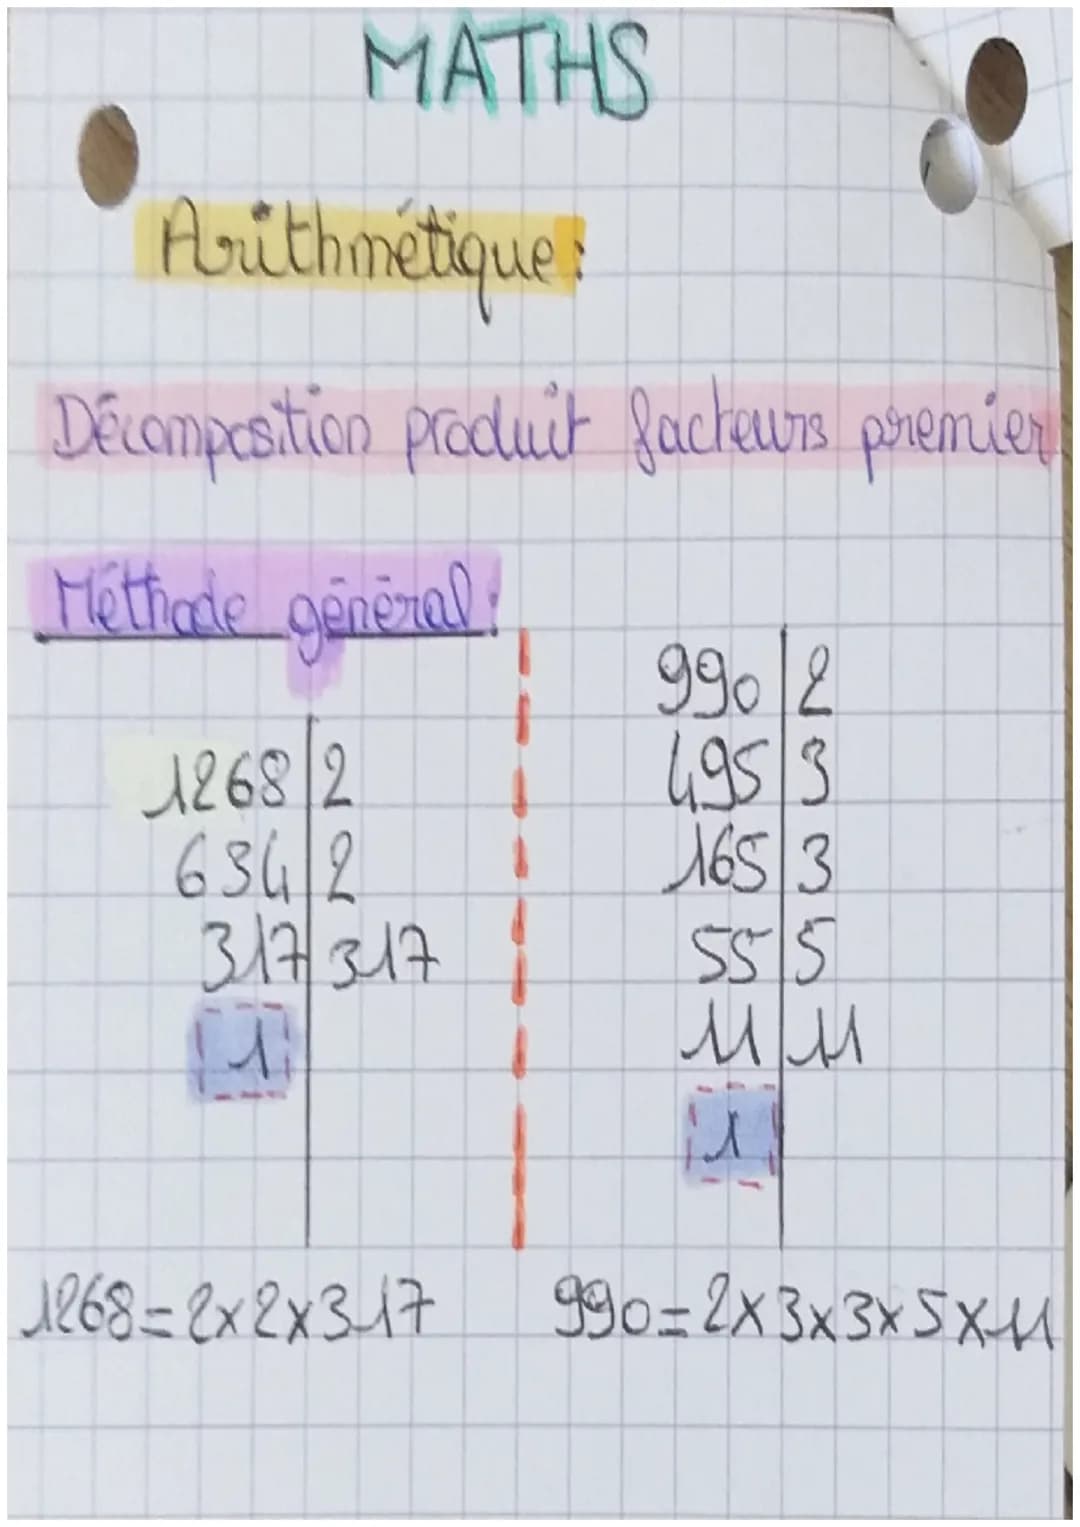 MATHS
Arithmétique :
Décomposition produit facteurs premier
Méthode général :
1268 | 2
634 | 2
317 | 317
1
990 | 2
495 | 3
165 | 3
55 | 5
11 | 11
1
1268 = 2x2x317
990 = 2x3x3x5x11